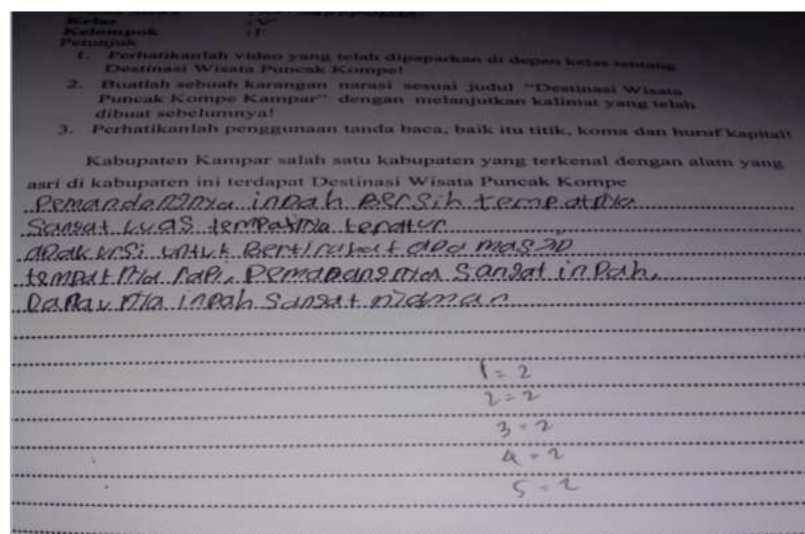 Kelas : V
Kelompok : 1
Petunjuk
1. Perhatikanlah video yang telah dipaparkan di depan kelas tentang
Destinasi Wisata Puncak Kompe!
2. Buatlah sebuah karangan narasi sesuai judul "Destinasi Wisata
Puncak Kompe Kampar" dengan melanjutkan kalimat yang telah
dibuat sebelumnya!
3. Perhatikanlah penggunaan tanda baca, baik itu titik, koma dan huruf kapital!
Kabupaten Kampar salah satu kabupaten yang terkenal dengan alam yang
asri di kabupaten ini terdapat Destinasi Wisata Puncak Kompe
inDah BerSih tempatnia
Sangat LUaS temPatnia teratur
aDa kurSi untuk aDa
tempatnia raPi. PemanDangnia Sangat inDah.
Danau nia inDah Sangat niaman
1 = 2
2 = 2
3 = 2
4 = 2
5 = 2